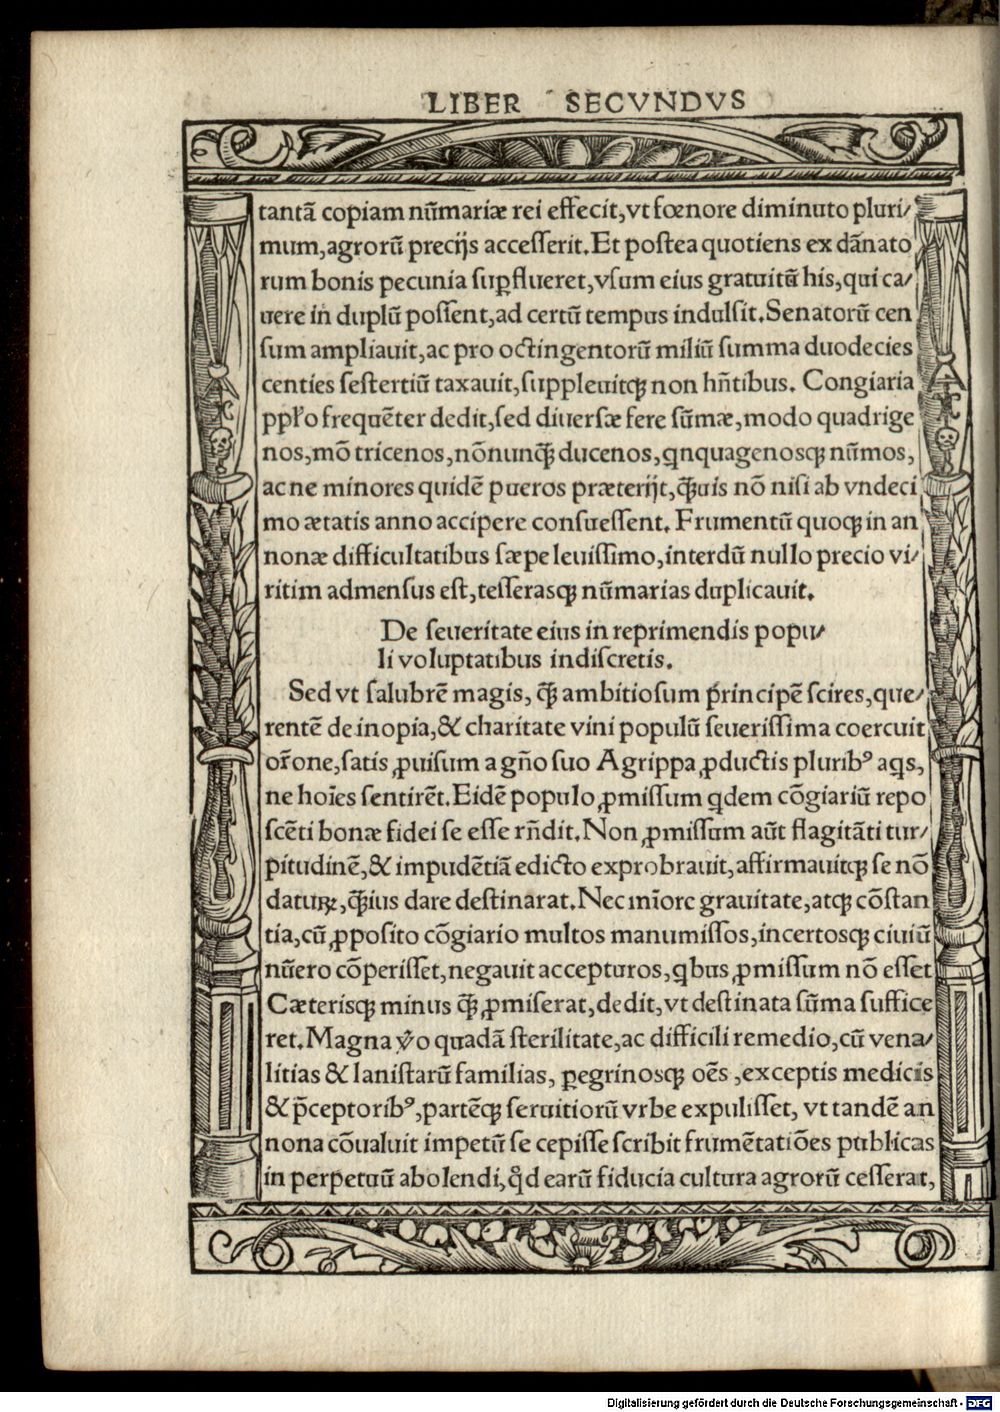 LIBER SECVNDVS
tantā copiam nūmariæ rei effecit,vt fœnore diminuto pluri/
mum,agrorū precijs accesserit.Et postea quotiens ex dānato
rum bonis pecunia suꝑflueret,vsum eius gratuitū his,qui ca/
uere in duplū possent,ad certū tempus indulsit.Senatorū cen
sum ampliauit,ac pro octingentorū miliū summa duodecies
centies sestertiū taxauit,suppleuitqꝫ non hn̄tibus. Congiaria
ppl̓o frequēter dedit,sed diuersæ fere sūmæ,modo quadrige
nos,mō tricenos,nōnunꝙ̄ ducenos,qnquagenosqꝫ nūmos,
ac ne minores quidē pueros præterijt,ꝙ̄uis nō nisi ab vndeci
mo ætatis anno accipere consuessent. Frumentū quoqꝫ in an
nonæ difficultatibus sæpe leuissimo,interdū nullo precio vi/
ritim admensus est,tesserasqꝫ nūmarias duplicauit.
De seueritate eius in reprimendis popu/
li voluptatibus indiscretis.
Sed vt salubrē magis, ꝙ̄ ambitiosum principē scires,que/
rentē de inopia,& charitate vini populū seuerissima coercuit
or̄one,satis ꝓuisum a gn̄o suo Agrippa ꝓductis pluribꝰ aqs,
ne hoīes sentirēt.Eidē populo ꝓmissum qdem cōgiariū repo
scēti bonæ fidei se esse rn̄dit.Non ꝓmissum aūt flagitāti tur/
pitudinē,& impudētiā edicto exprobrauit,affirmauitqꝫ se nō
datuꝝ,ꝙ̄uis dare destinarat.Nec mīore grauitate,atqꝫ cōstan
tia,cū ꝓposito cōgiario multos manumissos,incertosqꝫ ciuiū
nūero cōperisset,negauit accepturos,qbus ꝓmissum nō esset
Cæterisqꝫ minus ꝙ̄ ꝓmiserat,dedit,vt destinata sūma suffice
ret.Magna v̓o quadā sterilitate,ac difficili remedio,cū vena/
litias & lanistarū familias, ꝑegrinosqꝫ oēs ,exceptis medicis
& p̄ceptoribꝰ,partēqꝫ seruitiorū vrbe expulisset, vt tandē an
nona cōualuit impetū se cepisse scribit frumētatiōes publicas
in perpetuū abolendi,qd̓ earū fiducia cultura agrorū cesserat,
Digitalisierung gefördert durch die Deutsche Forschungsgemeinschaft - DFG